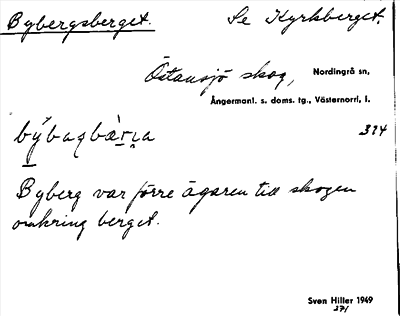 Bybergsberget. Se Kyrkberget.
Östansjö skog, Nordingrå sn,
Ångermanl. s. doms. tg., Västernorrl. l.
324
Byberg var förre ägaren till skogen
omkring berget.
Sven Hiller 1949